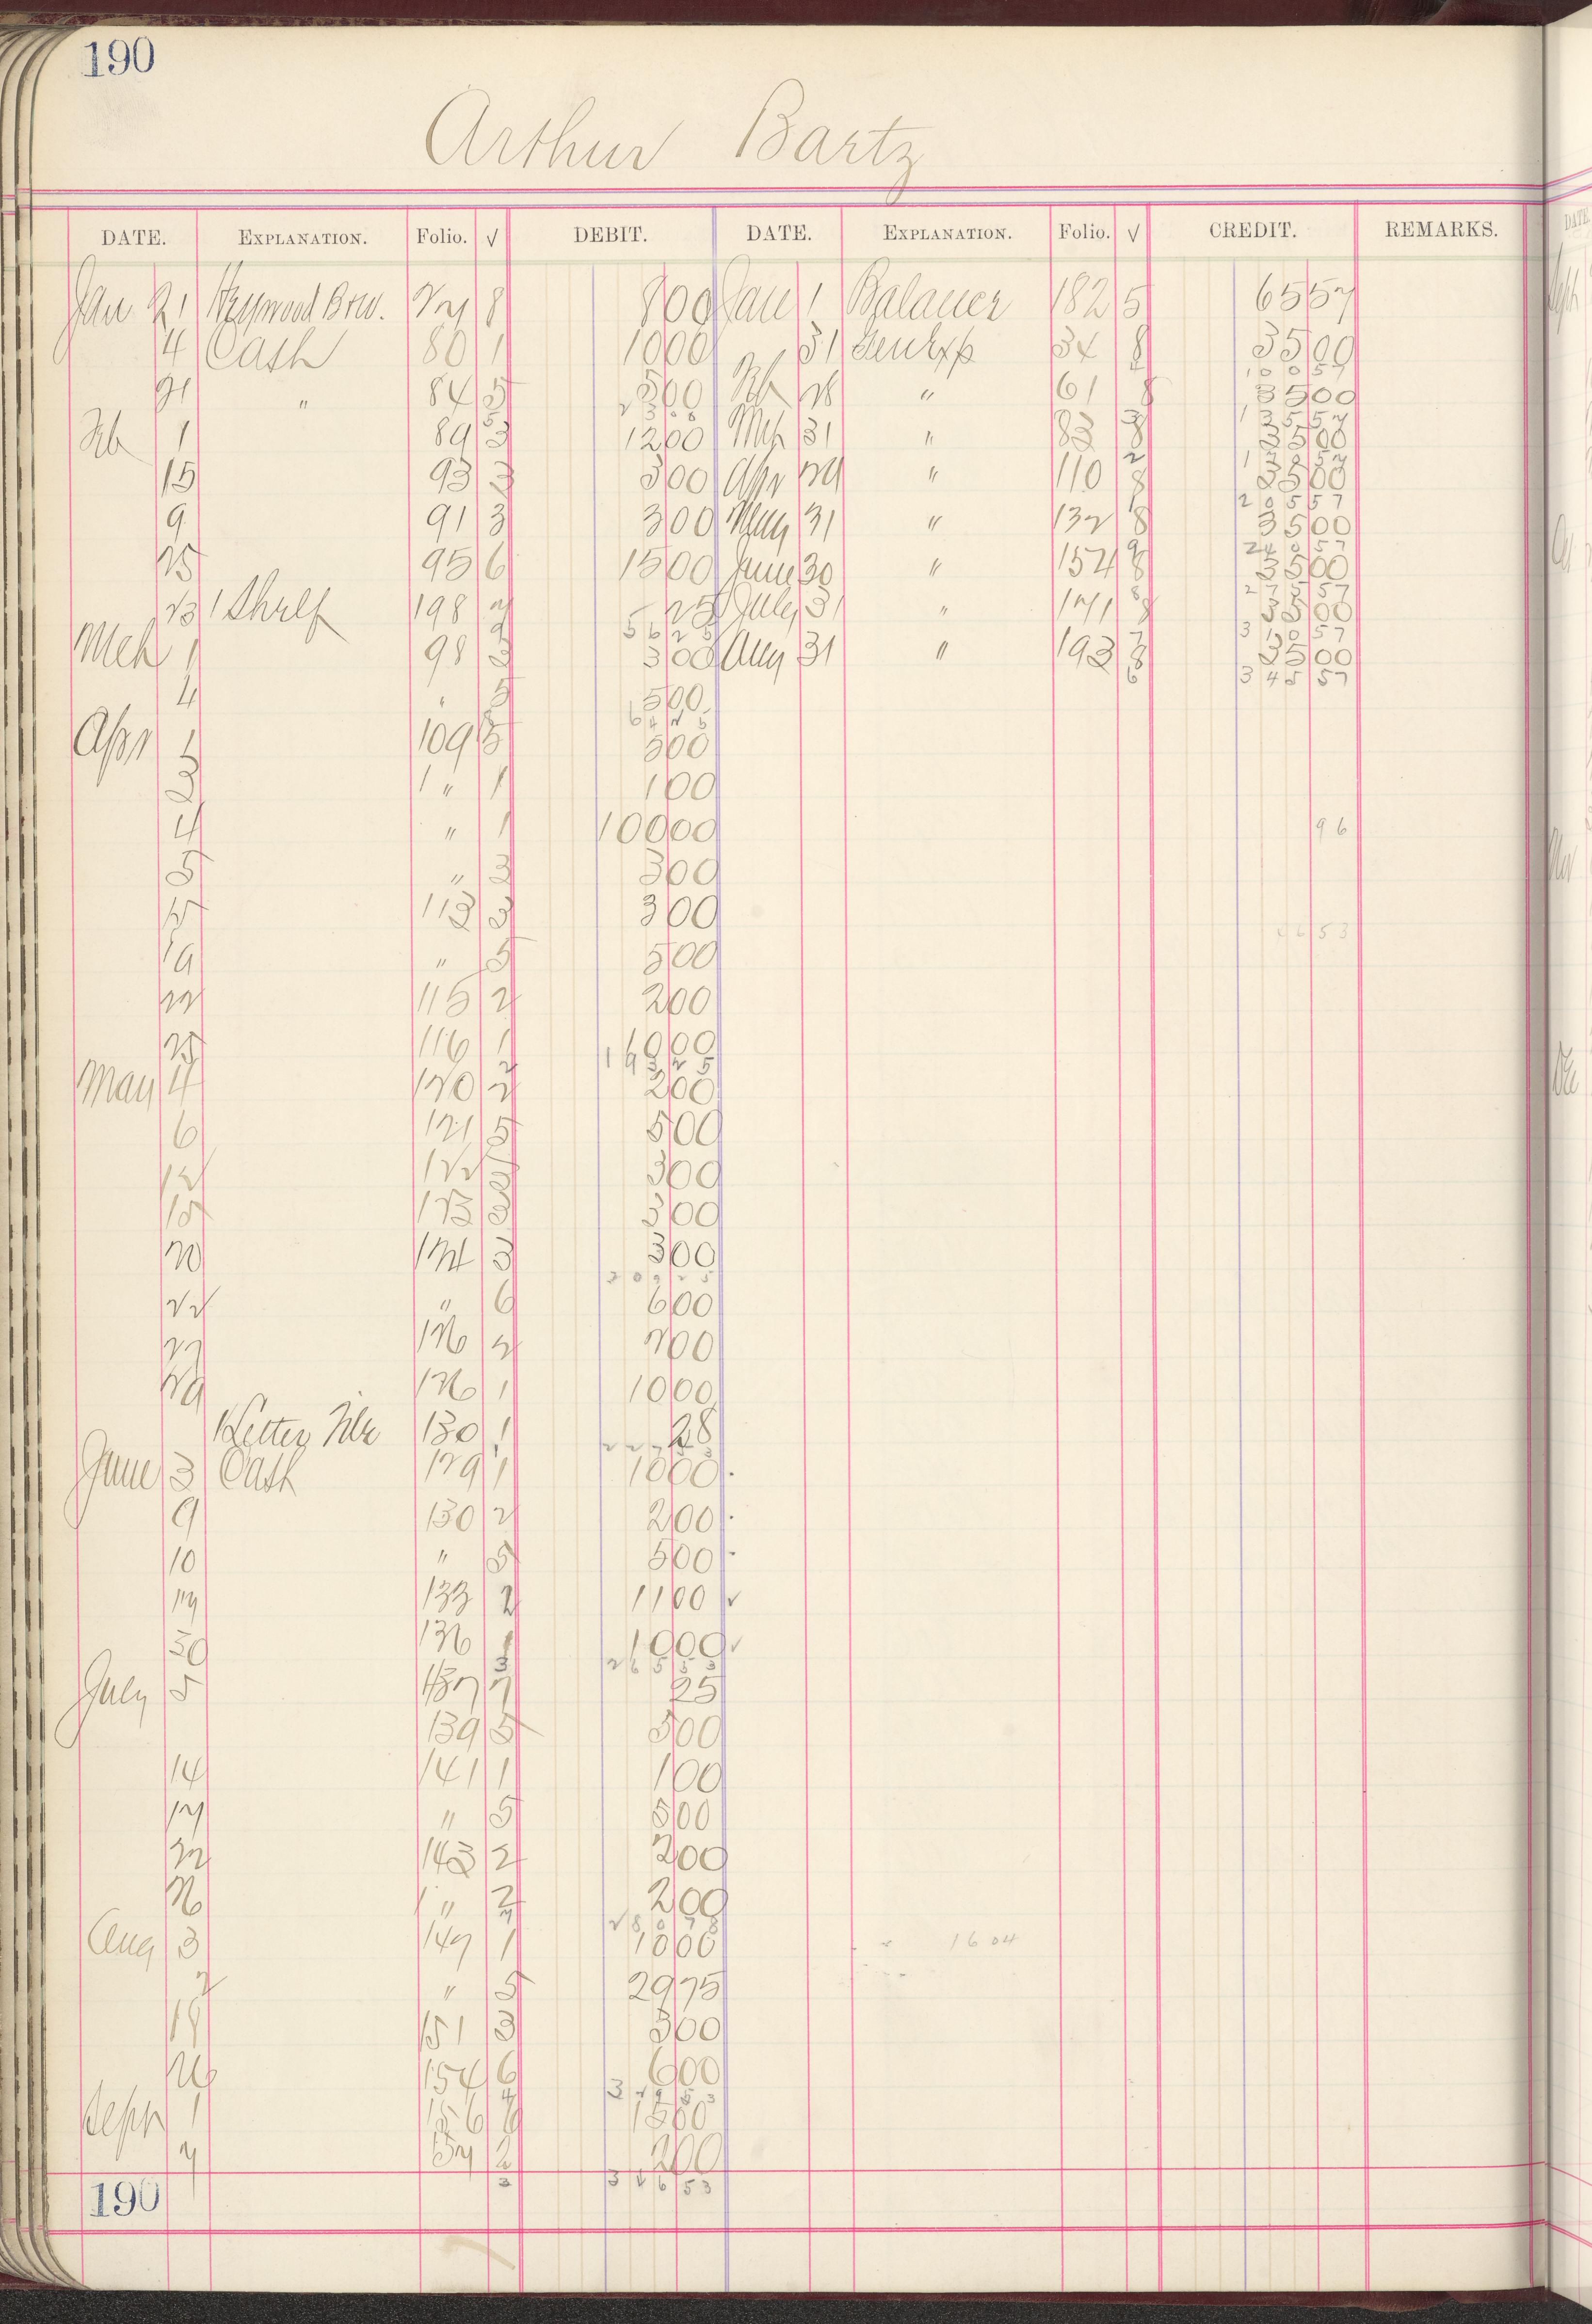 190
Arthur Bartz
DATE. EXPLANATION. Folio. √ DEBIT. DATE. EXPLANATION. Folio. √ CREDIT. REMARKS.
Jan 1 8 800 Jan 1 Balance 182 5 65 57
4 Cash 80 1 10 00 31 Gen Exp 34 8 35 00
100 57
21 " 84 5 5 00 Feb 28 " 61 8 35 00
23 00 135 57
Feb 1 89 3 12 00 Mch 31 " 83 8 35 00
170 57
15 93 3 3 00 Apr 29 " 110 8 35 00
205 57
9 91 3 3 00 May 31 " 132 8 35 00
240 57
25 95 6 15 00 June 30 " 154 8 35 00
275 57
23 1 Shelf 198 7 25 July 31 " 171 8 35 00
56 25 310 57
Mch 1 98 3 3 00 Aug 31 " 193 8 35 00
345 57
4 " 5 5 00
64 25
Apr 1 109 5 00
2 1 " 1 1 00
4 " 1 100 00 96
5 " 3 3 00
15 113 3 3 00
19 " 5 5 00
22 115 2 2 00
25 116 1 10 00
193 25
May 4 120 2 2 00
6 121 5 5 00
12 122 3 3 00
15 123 3 3 00
20 124 3 3 00
209 25
22 " 6 6 00
27 126 2 2 00
29 126 1 10 00
1 Letter File 130 1 28
227 53
June 3 Cash 129 1 10 00
9 130 2 2 00
10 " 5 5 00
17 133 2 11 00 √
30 136 1 10 00 √
265 53
July 5 137 7 25
139 5 5 00
14 141 1 1 00
17 " 5 5 00
22 143 2 2 00
26 " 2 2 00
280 78
Aug 3 147 1 10 00 16 04
" 5 29 75
19 151 3 3 00
26 154 6 6 00
329 53
Sept 1 156 6 15 00
7 157 2 2 00
346 53
190